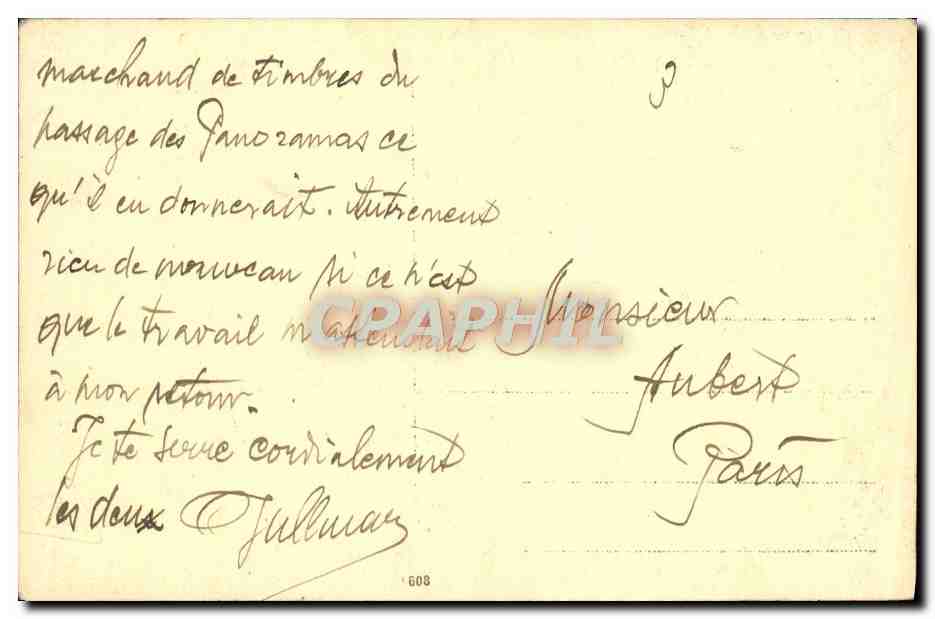 marchand de timbres du
passage des Panoramas ce
qu'il en donnerait. Autrement
rien de nouveau si ce n'est
que le travail m'attendait
à mon retour.
Je te serre cordialement
les deux
Monsieur
Aubert
Paris
608
CPAPHIL